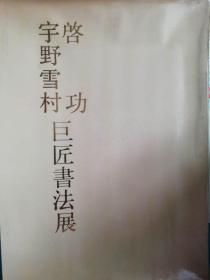 啓功
宇野雪村
巨匠書法展